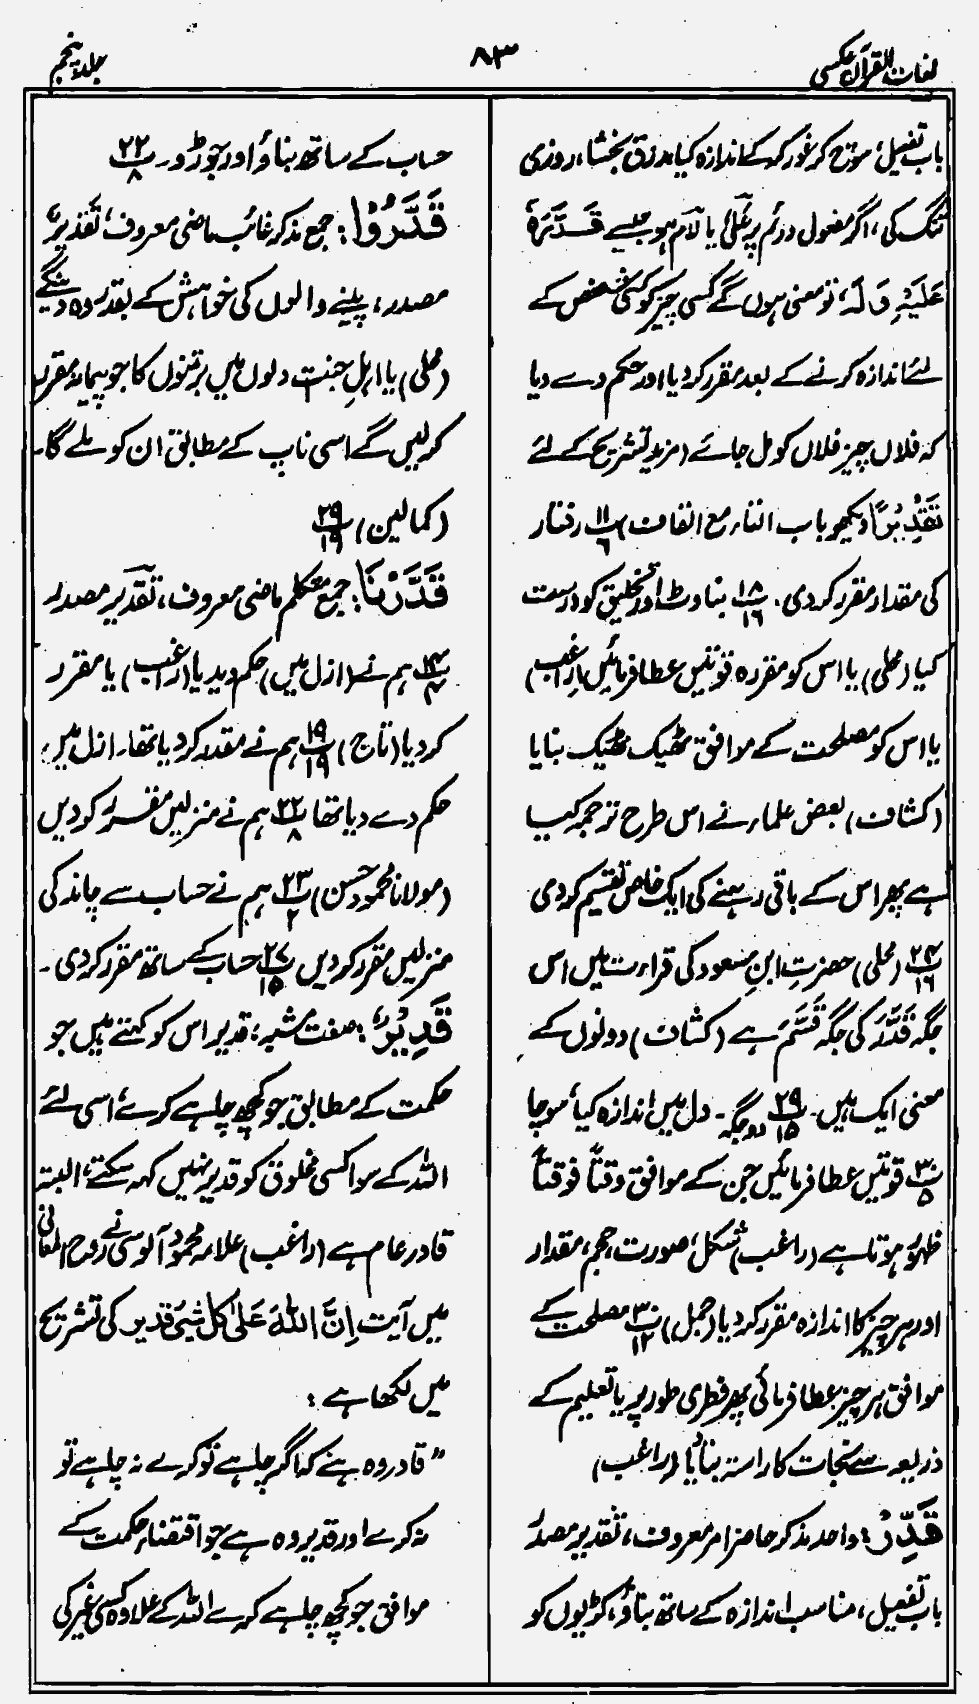 لغات القرآن عکسی
۸۳
جلد پنجم
باب تفعیل، سوچ کر غور کر کے اندازہ کیا، رزق بخشا، روزی
تنگ کی، اگر مفعول دوئم پر علیٰ یا لام ہو جیسے قَدَّرَہٗ
عَلَیْہِ وَلَہٗ، تو معنی ہوں گے کسی چیز کو کسی شخص کے
لئے اندازہ کرنے کے بعد مقرر کر دیا اور حکم دے دیا
کہ فلاں چیز فلاں کو مل جائے (مزید تشریح کے لئے
تَقْدِیْرًا دیکھو باب التاء مع القاف) پ ۱۱/۶ رفتار
کی مقدار مقرر کر دی۔ پ ۱۸/۱۶ بناوٹ اور تخلیق کو درست
کیا (محلی) یا اس کو مقررہ قوتیں عطا فرمائیں (راغب)
یا اس کو مصلحت کے موافق ٹھیک ٹھیک بنایا
(کشاف) بعض علماء نے اس طرح ترجمہ کیا
ہے پھر اس کے باقی رہنے کی ایک خاص تقسیم کر دی
پ ۲۴/۱۶ (محلی) حضرت ابن مسعود کی قراءت میں اس
جگہ قَدَّرَ کی جگہ قَسَّمَ ہے (کشاف) دونوں کے
معنی ایک ہیں۔ پ ۲۹/۱۵ دو جگہ۔ دل میں اندازہ کیا، سوچا
پ ۳۰/۵ قوتیں عطا فرمائیں جن کے موافق وقتاً فوقتاً
ظہور ہوتا ہے (راغب) شکل، صورت، حجم، مقدار
اور ہر چیز کا اندازہ مقرر کر دیا (جمل) پ ۳۰/۱۲ مصلحت کے
موافق ہر چیز عطا فرمائی پھر فطری طور پر یا تعلیم کے
ذریعہ سے نجات کا راستہ بتایا (راغب)
قَدِّرْ: واحد مذکر حاضر امر معروف، تقدیر مصدر
باب تفعیل، مناسب اندازہ کے ساتھ بناؤ، کڑیوں کو
حساب کے ساتھ بناؤ اور جوڑو۔ پ ۲۲/۸
قَدَّرُوْا: جمع مذکر غائب ماضی معروف، تَقْدِیْرٌ
مصدر، پینے والوں کی خواہش کے بقدر وہ دینگے
(محلی) یا اہلِ جنت دلوں میں برتنوں کا جو پیمانہ مقرر
کر لیں گے اسی ناپ کے مطابق ان کو ملے گا۔
(کمالین) پ ۲۹/۱۹
قَدَّرْنَا: جمع متکلم ماضی معروف، تقدیر مصدر
پ ۱۴/۴ ہم نے (ازل میں) حکم دیدیا (راغب) یا مقرر
کر دیا (تاج) پ ۱۹/۱۹ ہم نے مقدر کر دیا تھا۔ ازل میں
حکم دے دیا تھا پ ۲۲/۸ ہم نے منزلیں مقرر کر دیں
(مولانا محمود حسن) پ ۲۳/۲ ہم نے حساب سے چاند کی
منزلیں مقرر کر دیں پ ۲۷/۱۵ حساب کے ساتھ مقرر کر دی۔
قَدِیْرٌ: صفت مشبہ؛ قدیر اس کو کہتے ہیں جو
حکمت کے مطابق جو کچھ چاہے کرے، اسی لئے
اللہ کے سوا کسی مخلوق کو قدیر نہیں کہہ سکتے، البتہ
قادر عام ہے (راغب) علامہ محمود آلوسی نے روح المعانی
میں آیت اِنَّ اللّٰہَ عَلٰی کل شیءٍ قدیر کی تشریح
میں لکھا ہے:
"قادر وہ ہے کہ اگر چاہے تو کرے نہ چاہے تو
نہ کرے اور قدیر وہ ہے جو اقتضاء حکمت کے
موافق جو کچھ چاہے کرے اللہ کے علاوہ کسی غیر کی